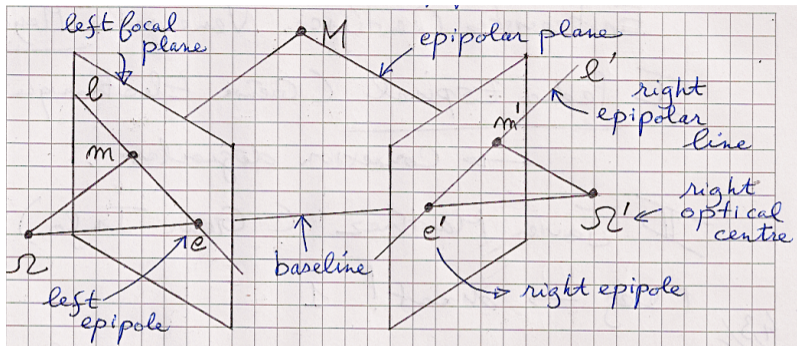 left focal
plane
M
epipolar plane
l
l'
right
epipolar
line
m
m'
Ω
e
e'
Ω'
right
optical
centre
baseline
left
epipole
right epipole